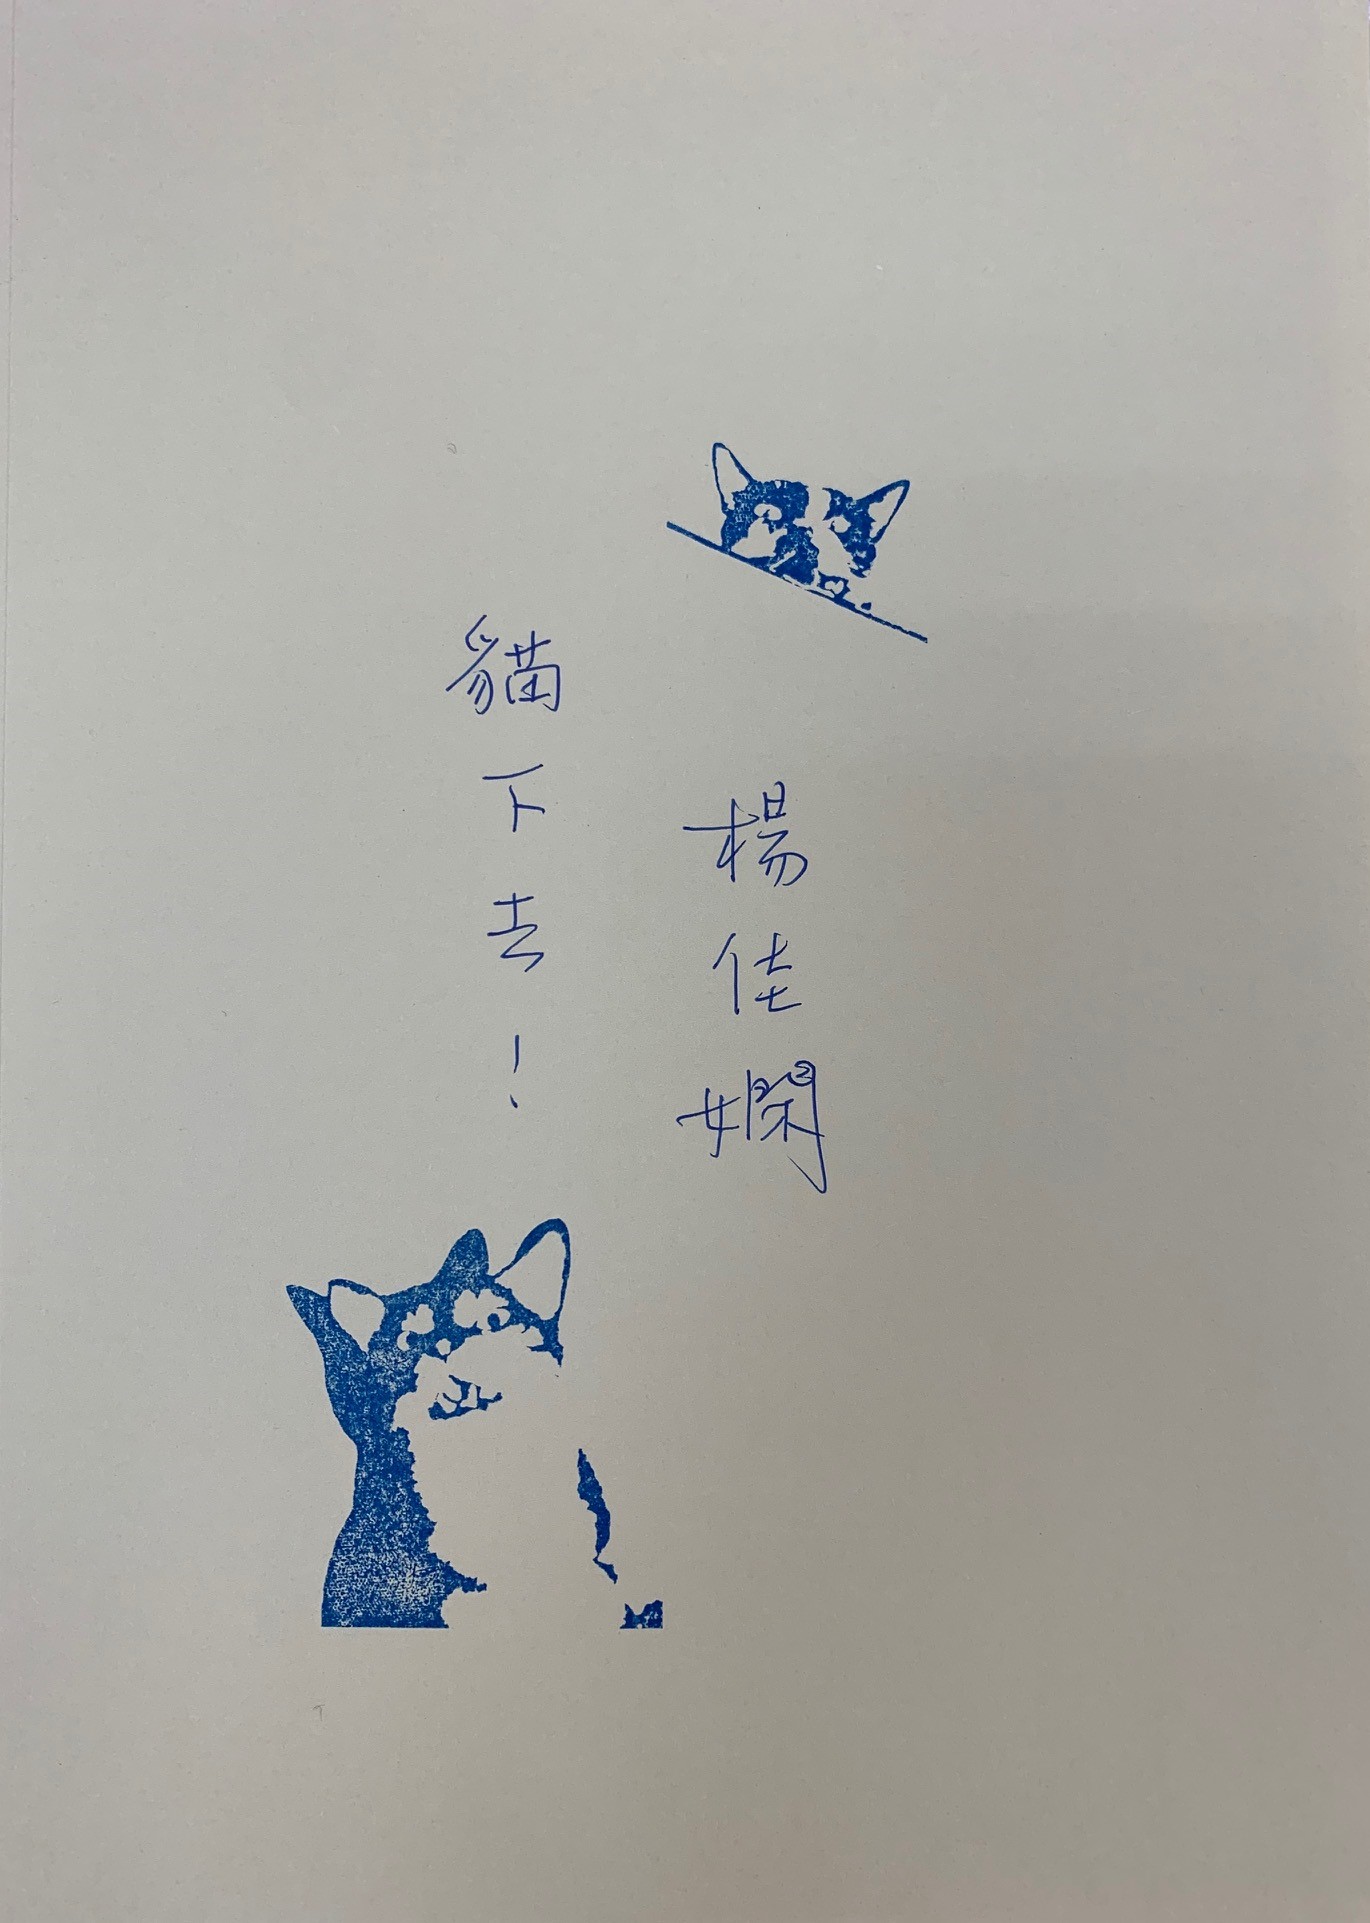 楊佳嫻
貓下去！